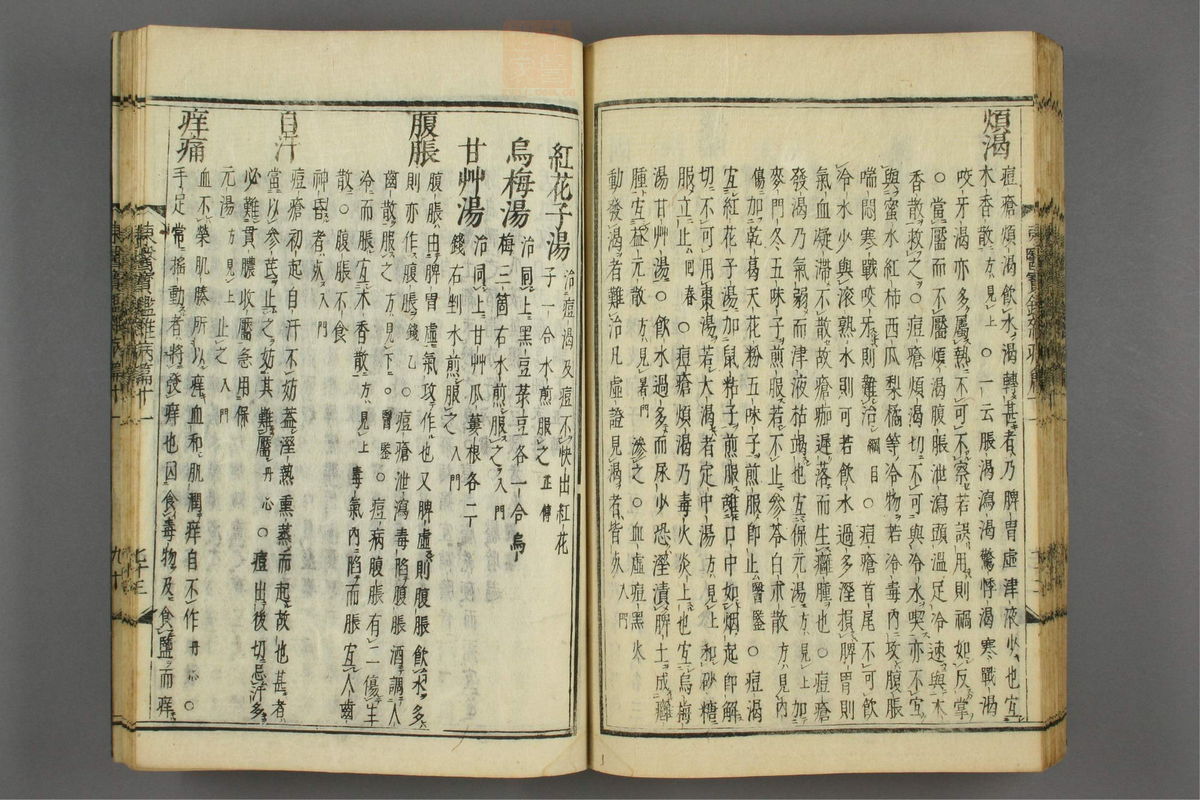 煩渴
痘瘡煩渴飮水渴轉甚者乃脾胃虛津液少也宜
木香散方見上○一云脹渴瀉渴驚悸渴寒戰渴
咬牙渴亦多屬熱不可不察若誤用則禍如反掌
○當靨而不靨煩渴腹脹泄瀉頭溫足冷速與木
香散救之○痘瘡煩渴切不可與冷水喫亦不宜
與蜜水紅柿西瓜梨橘等冷物若冷毒內攻腹脹
喘悶寒戰咬牙則難治綱目○痘瘡首尾不可飮
冷水少與滾熟水則可若飮水過多溼損脾胃則
氣血凝滯不散故瘡痂遲落而生癰腫也○痘瘡
發渴乃氣弱而津液枯竭也宜保元湯方見上加
麥門冬五味子煎服若不止參苓白朮散方見內傷
加乾葛天花粉五味子煎服卽止醫鑒○痘渴
宜紅花子湯加鼠粘子煎服離口中如烟起卽解
切不可用棗湯若大渴者定中湯方見上和砂糖
服立止回春○痘瘡煩渴乃毒火炎上也宜烏梅
湯甘艸湯○飮水過多而尿少恐溼漬脾土成癰
腫宜益元散方見暑門滲之○血虛痘黑火
動發渴者難治凡虛證見渴者皆㐫入門
紅花子湯
治痘渴及痘不快出紅花
子一合水煎服之正傳
烏梅湯
治同上黑豆菉豆各一合烏
梅三箇右水煎服之入門
甘艸湯
治同上甘艸瓜蔞根各二
錢右剉水煎服之入門
腹脹
腹脹由脾胃虛氣攻作也又脾虛則腹脹飮水多
則亦作腹脹錢乙○痘瘡泄瀉毒陷腹脹酒調人
齒散服之方見下醫鑒○痘病腹脹有二傷生
冷而脹宜木香散方見上毒氣內陷而脹宜人齒
散○腹脹不食
神昏者㐫入門
自汗
痘瘡初起自汗不妨蓋溼熱熏蒸而起故也甚者
當以參芪止之妨其難靨丹心○痘出後切忌汗多
必難貫膿收靨急用保
元湯方見上止之入門
痒痛
血不榮肌膝所以痒血和肌潤痒自不作丹心○
手足常搖動者將發痒也因食毒物及食鹽而痒
東醫寶鑑雜病篇十一